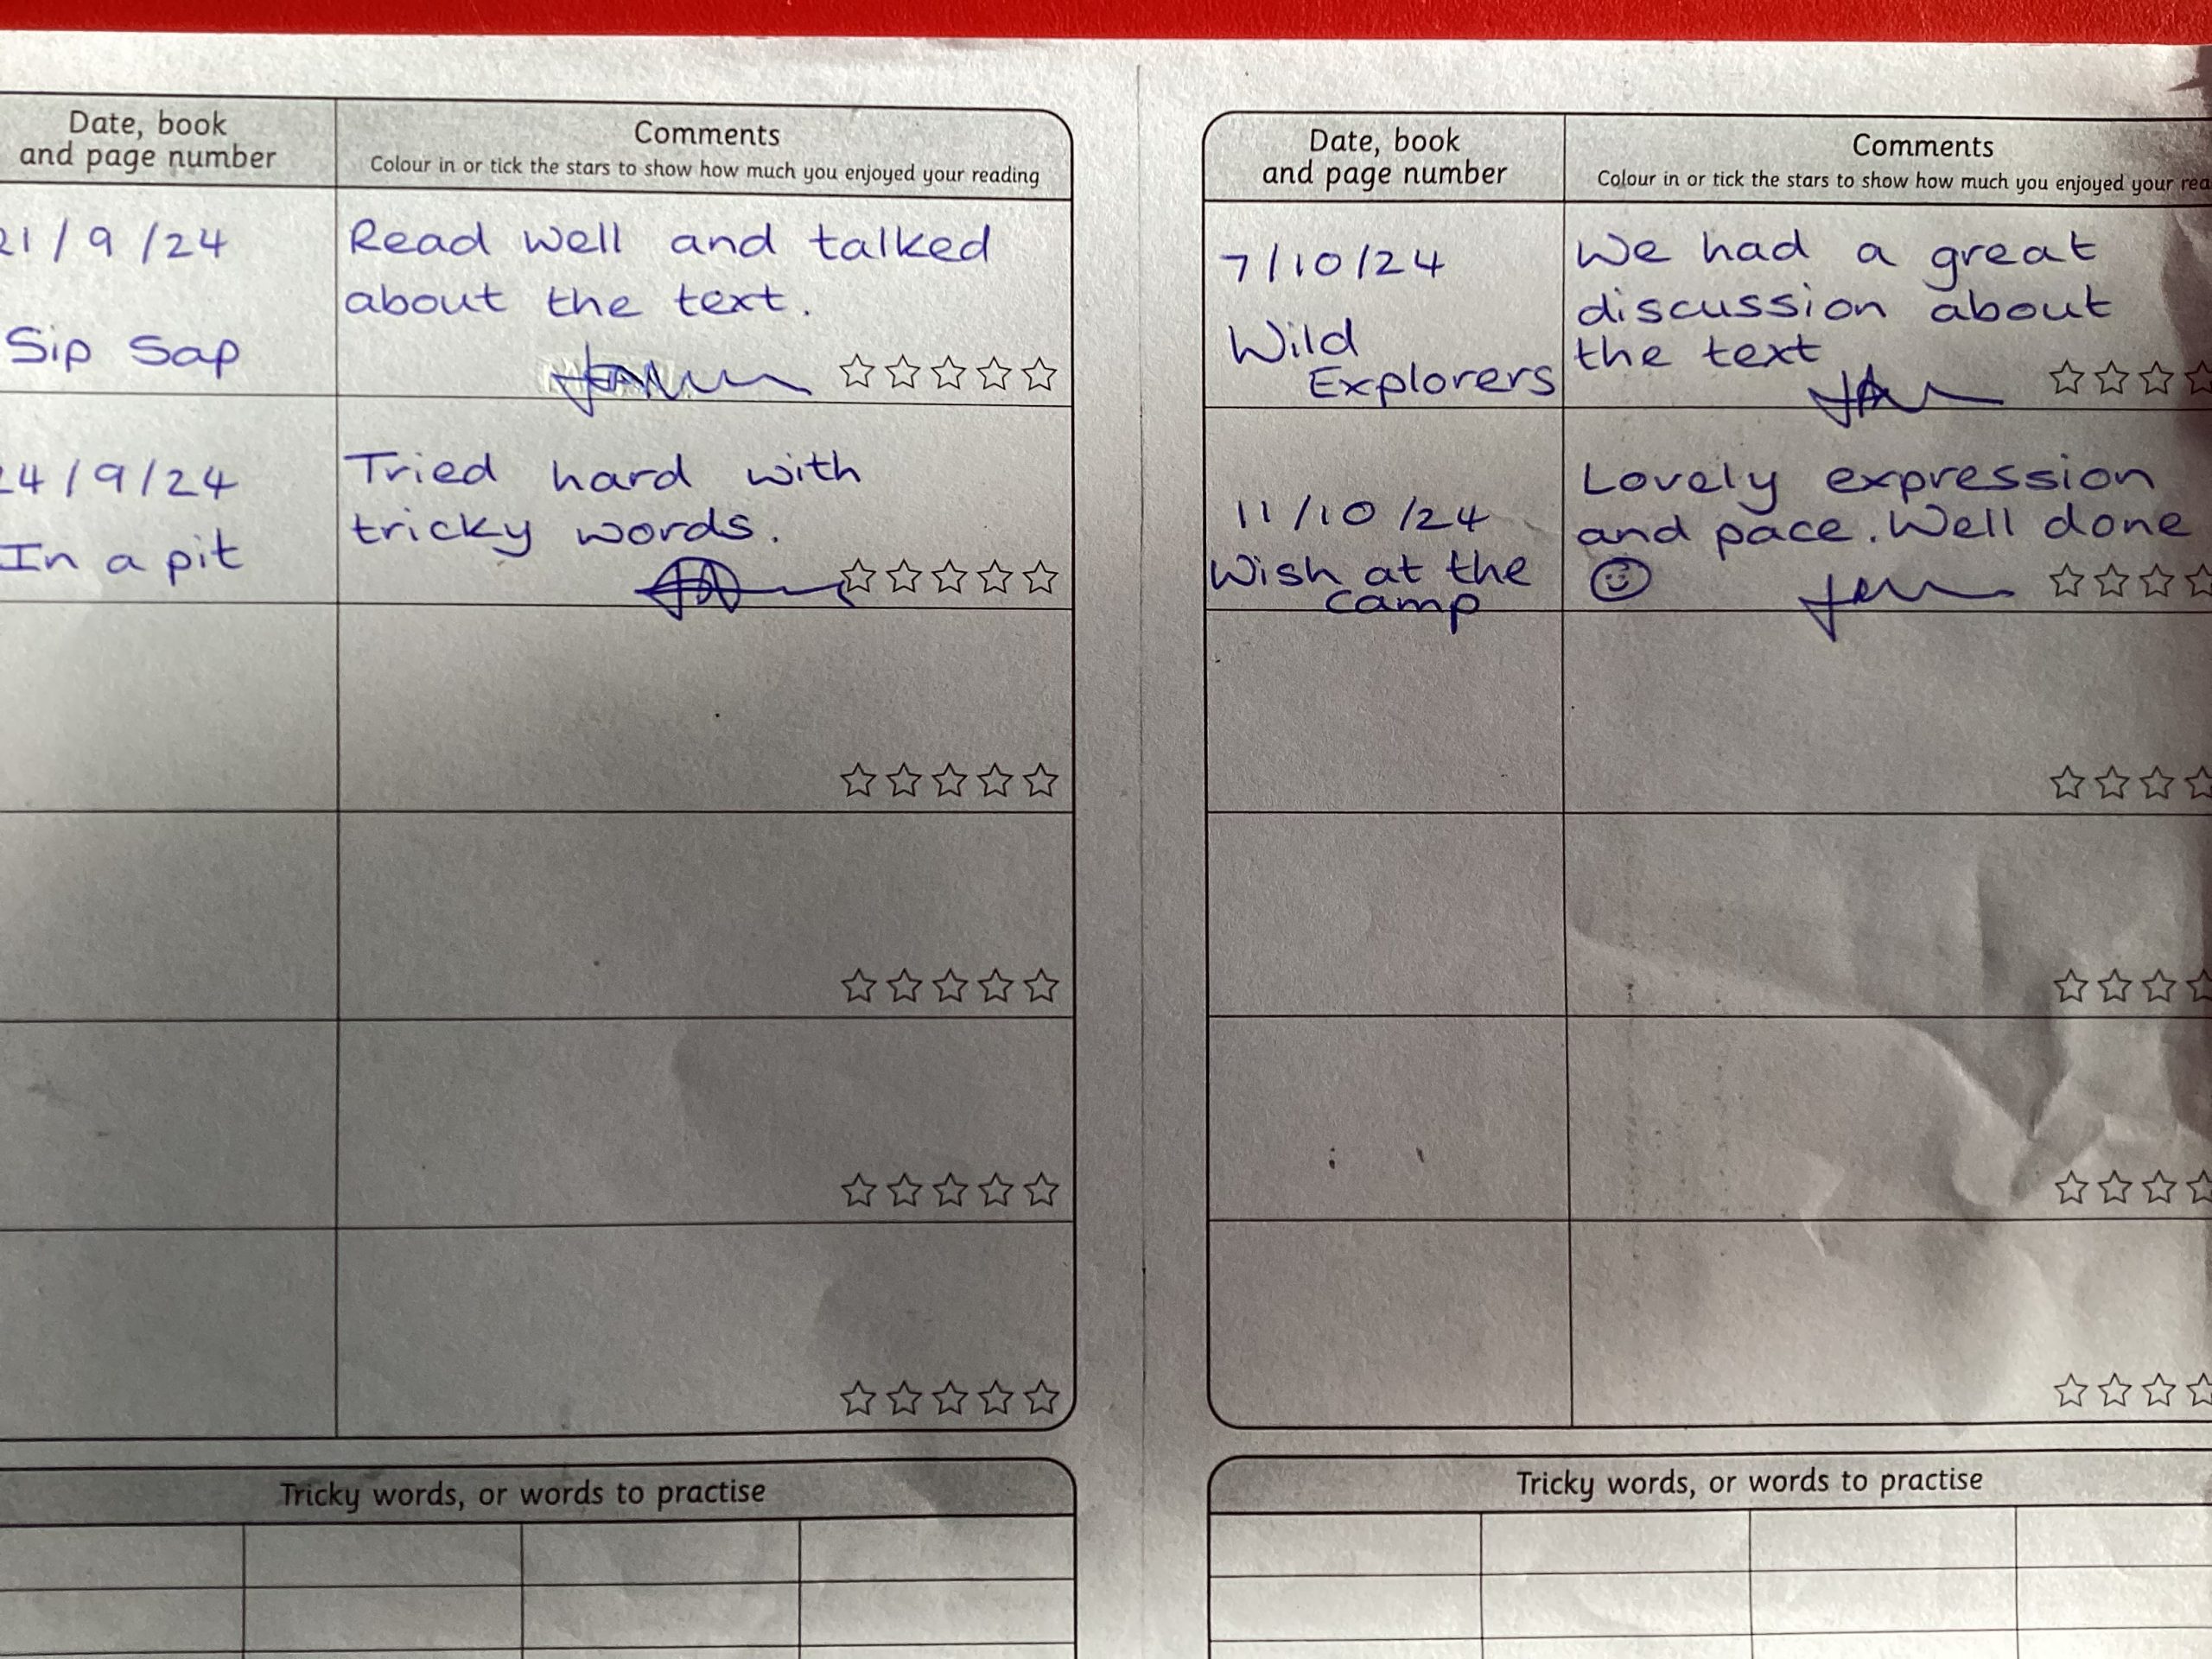 Date, book
and page number
Comments
Colour in or tick the stars to show how much you enjoyed your reading
21/9/24
Sip Sap
Read well and talked
about the text.
4/9/24
In a pit
Tried hard with
tricky words.
Tricky words, or words to practise
Date, book
and page number
Comments
Colour in or tick the stars to show how much you enjoyed your rea
7/10/24
Wild
Explorers
We had a great
discussion about
the text
11/10/24
Wish at the
camp
Lovely expression
and pace. Well done
Tricky words, or words to practise